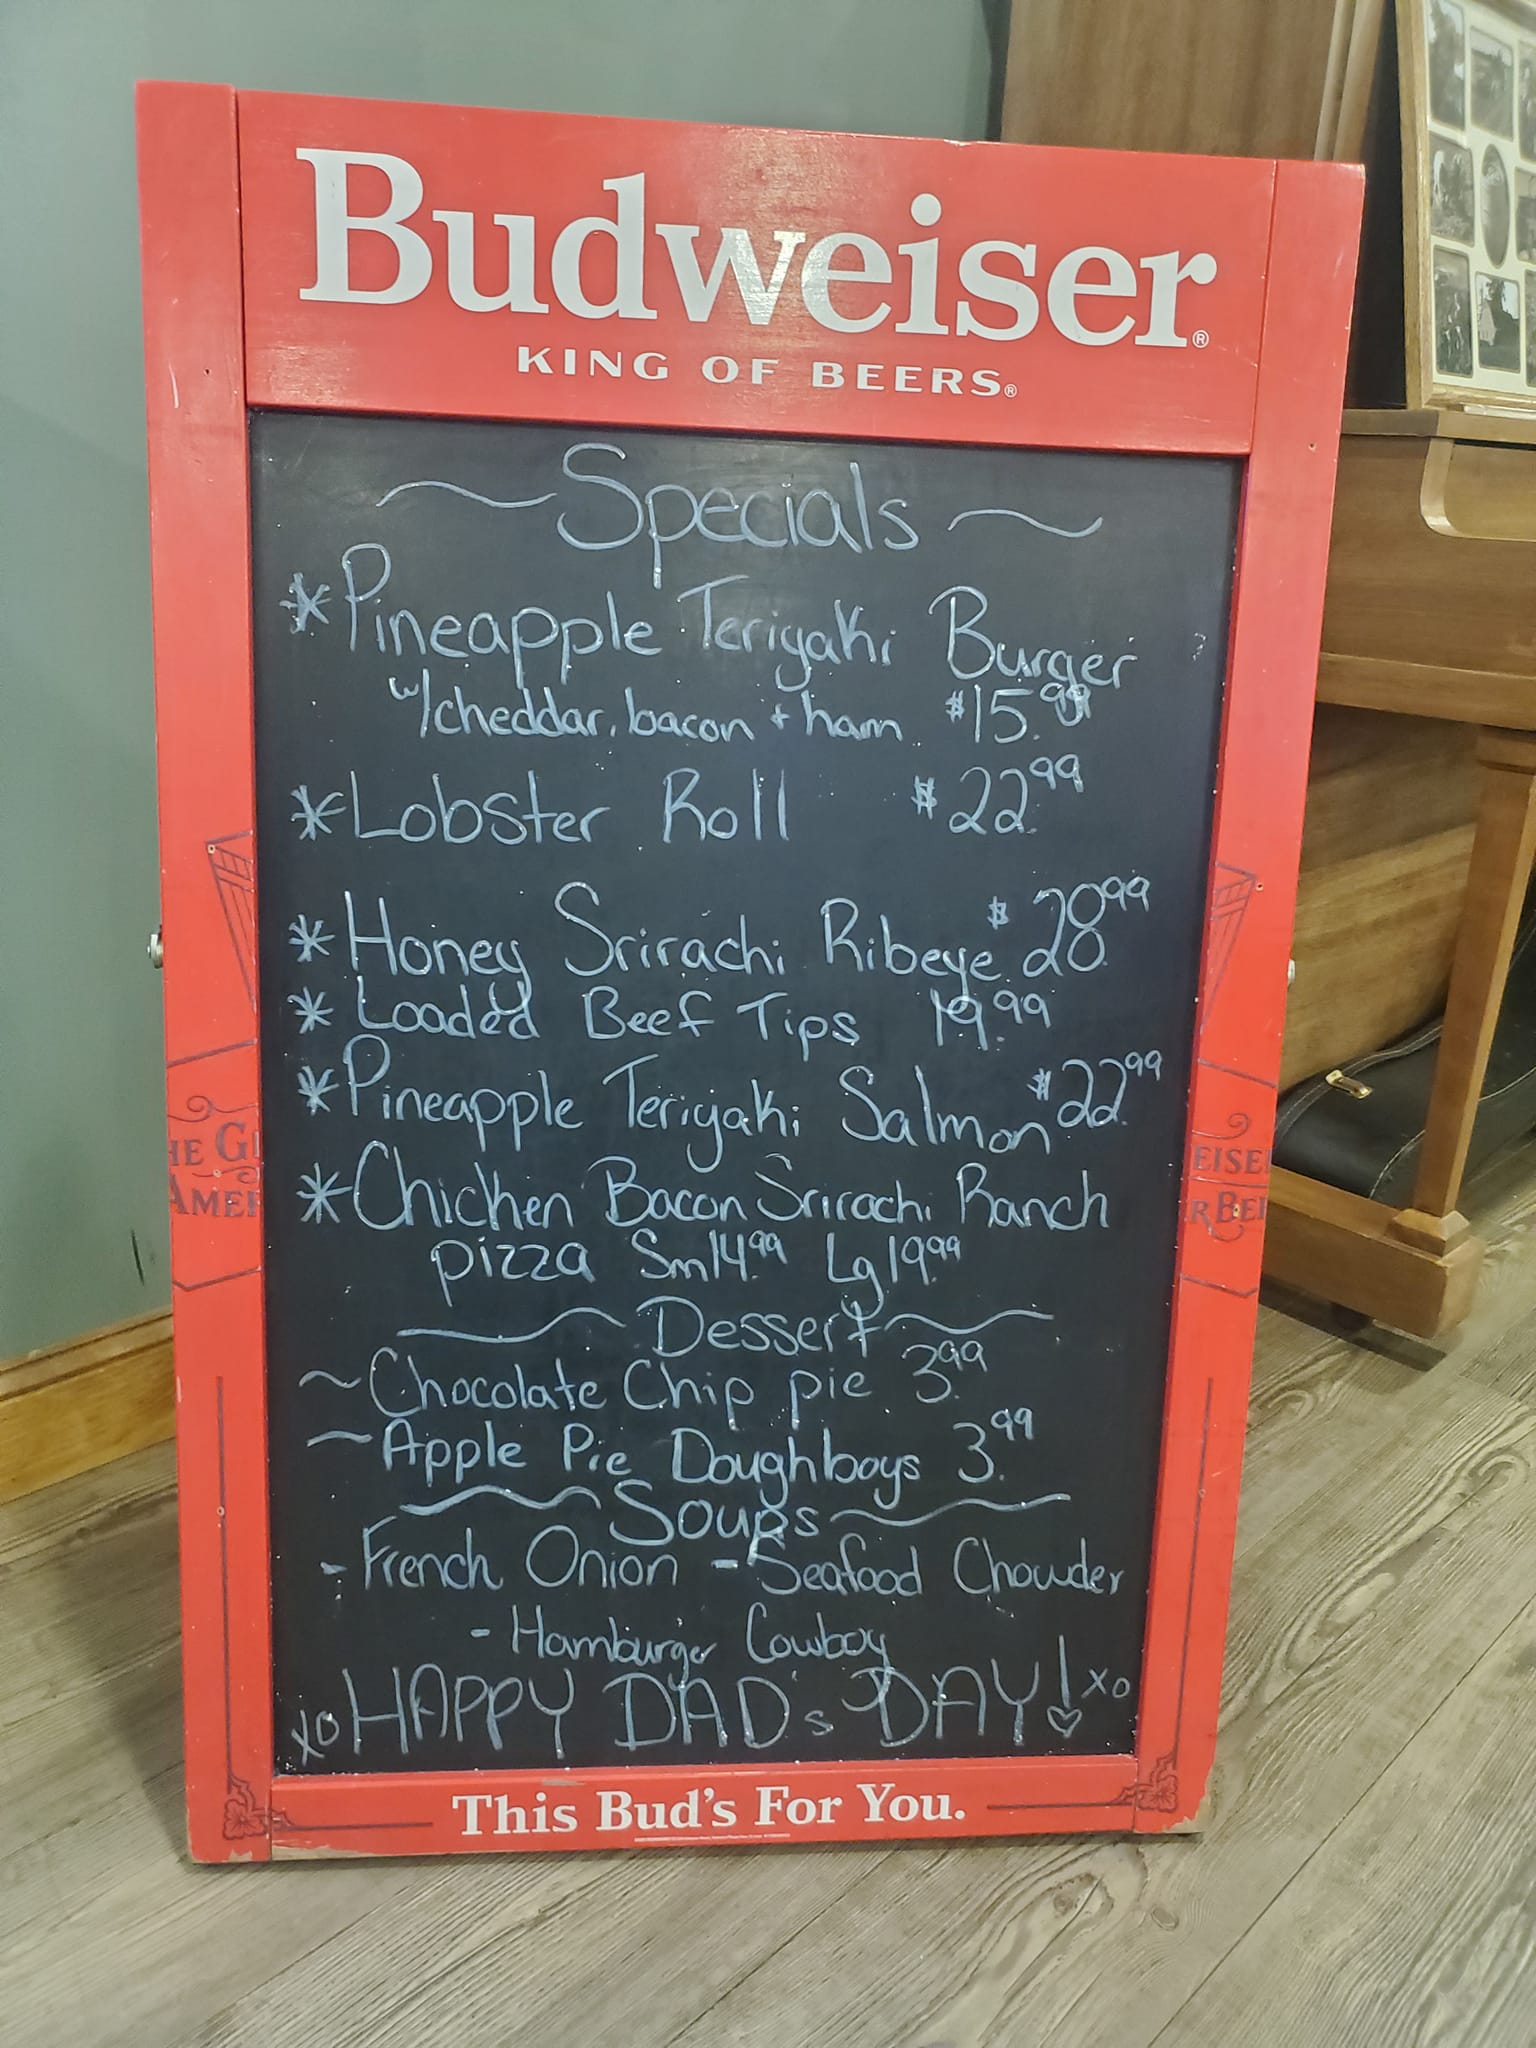 Budweiser®
KING OF BEERS®
~Specials~
*Pineapple Teriyaki Burger
w/cheddar, bacon + ham $15.99
*Lobster Roll $22.99
*Honey Srirachi Ribeye $28.99
*Loaded Beef Tips 19.99
*Pineapple Teriyaki Salmon $22.99
*Chicken Bacon Srirachi Ranch
pizza Sm14.99 Lg19.99
~Dessert~
~Chocolate Chip pie 3.99
~Apple Pie Doughboys 3.99
~Soups~
- French Onion - Seafood Chowder
- Hamburger Cowboy
xo HAPPY DAD's DAY! xo
HE G
AMER
EISE
R BE
This Bud's For You.